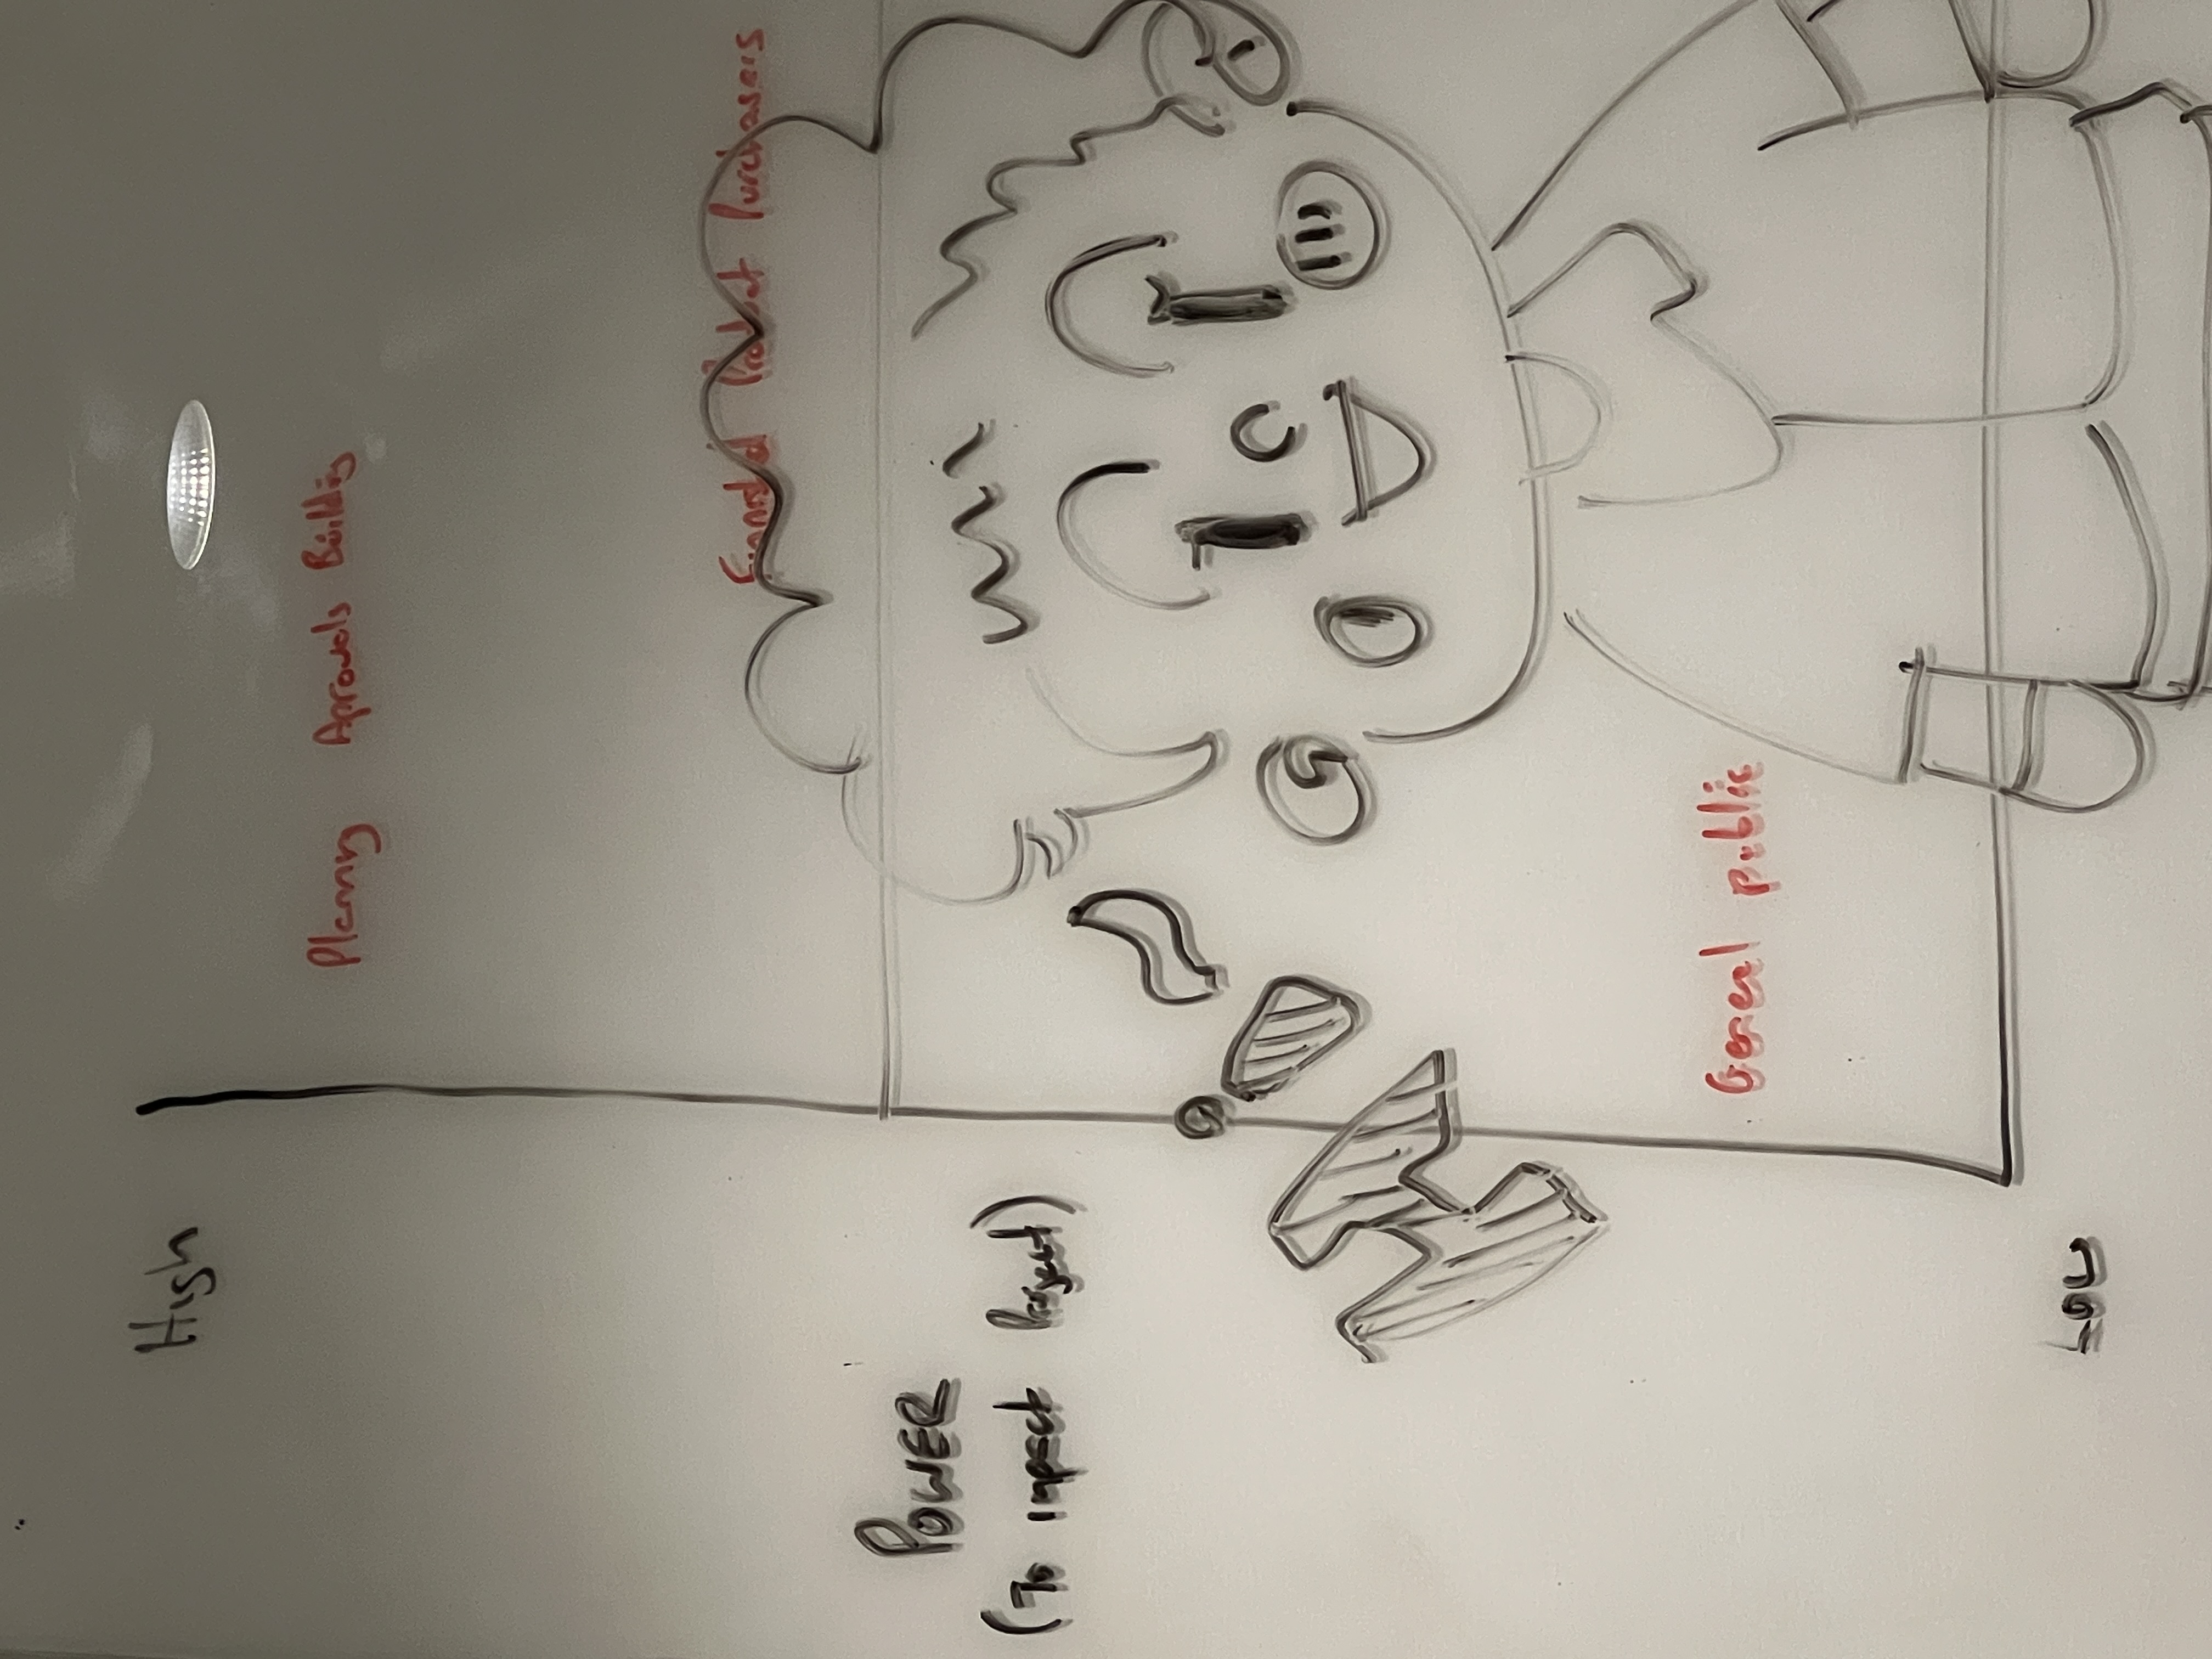 High
Planning Aprovals Building
Finnished Product Purchasers
POWER
(To impact Project)
General public
Low